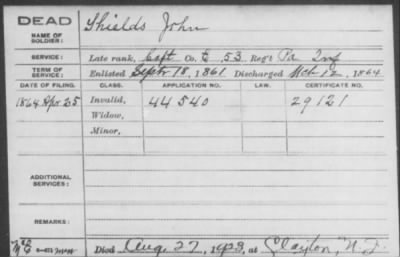 DEAD
NAME OF SOLDIER: Shields John
SERVICE: Late rank, Capt Co. G 53 Reg't Pa Inf
TERM OF SERVICE: Enlisted Sept 18, 1861 Discharged Mch 12, 1864
DATE OF FILING. CLASS. APPLICATION NO. LAW. CERTIFICATE NO.
1864 Apr 25 Invalid, 44540 29121
Widow,
Minor,
ADDITIONAL SERVICES:
REMARKS:
Died Aug. 27, 1923, at Clayton, N. J.